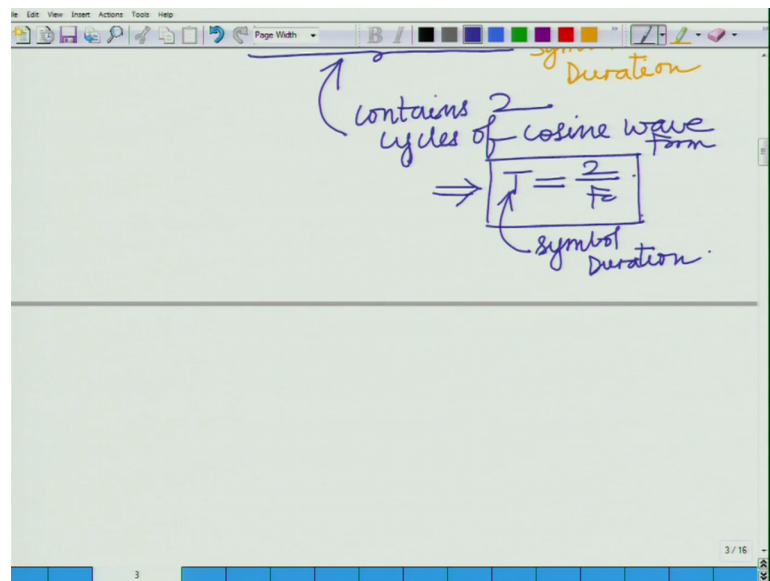 File Edit View Insert Actions Tools Help
Page Width
B I
Symbol
Duration
contains 2
cycles of cosine wave
form
⇒ T = 2/Fc
symbol
Duration.
3 / 16
3